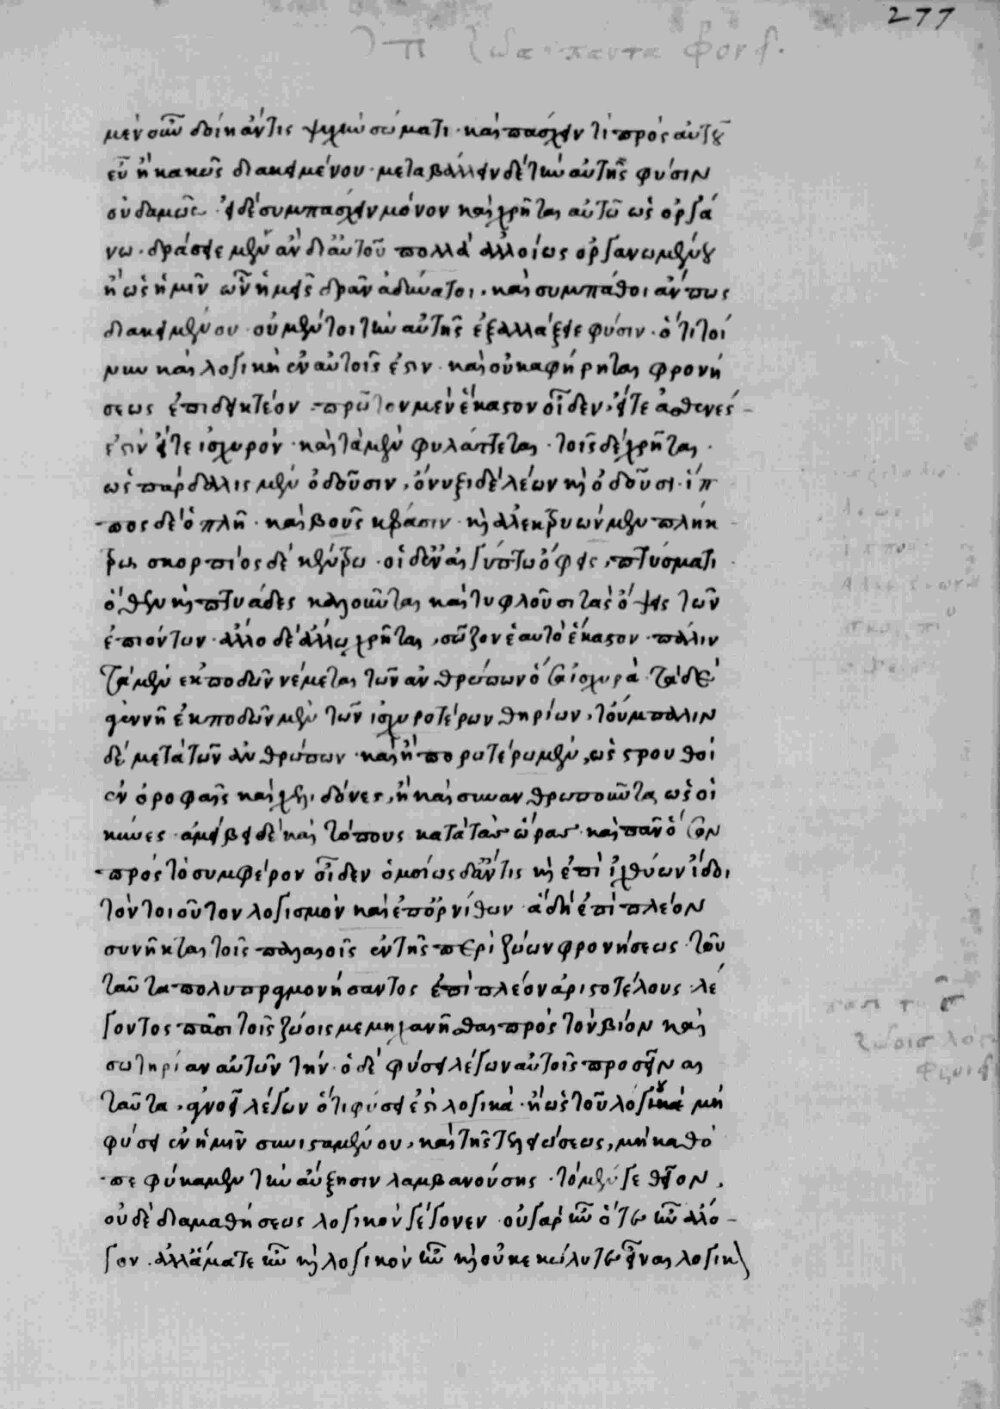 277
ζῶα πάντα φρονεῖ.
μὲν οὖν δοίη ἄν τις ψυχὴν σώματι· καὶ πάσχειν τὶ πρὸς αὐτοῦ
εὖ ἢ κακῶς διακειμένου· μεταβάλλειν δὲ τὴν αὐτῆς φύσιν
οὐδαμῶς· εἰ δὲ συμπάσχειν μόνον καὶ χρῆται αὐτῶ ὡς ὀργά
νω· δράσειε μὲν ἂν δι' αὐτοῦ πολλὰ ἀλλοίως ὀργανωμένου
ἢ ὡς ἡμῖν ὧν ἡμεῖς δρᾶν ἀδύνατοι· καὶ συμπάθοι ἄν πως
διακειμένου· οὐ μέντοι τὴν αὐτῆς ἐξαλλάξειε φύσιν· ὅτι τοί
νυν καὶ λογικὴ ἐν αὐτοῖς ἐστιν· καὶ οὐκ ἀφήρηται φρονή
σεως ἐπιδεικτέον· πρῶτον μὲν ἕκαστον οἶδεν, εἴτε ἀσθενές
ἐστιν εἴτε ἰσχυρόν· καὶ τὰ μὲν φυλάττεται· τοῖς δὲ χρῆται·
ὡς πάρδαλις μὲν ὀδοῦσιν, ὄνυξι δὲ λέων καὶ ὀδοῦσι· ἵπ
πος δὲ ὁπλῆ· καὶ βοῦς κέρασιν· καὶ ἀλεκτρυὼν μὲν πλήκ
τρω, σκορπίος δὲ κέντρω· οἱ δ' ἐν αἰγύπτω ὄφεις, πτύσματι
ὅθεν καὶ πτυάδες καλοῦνται καὶ τυφλοῦσι τὰς ὄψεις τῶν
ἐπιόντων· ἄλλο δὲ ἄλλω χρῆται, σῶζον ἑαυτὸ ἕκαστον· πάλιν
τὰ μὲν ἐκποδὼν νέμεται τῶν ἀνθρώπων ὅσα ἰσχυρά· τὰ δὲ
ἀγεννῆ ἐκποδὼν μὲν τῶν ἰσχυροτέρων θηρίων, τοὔμπαλιν
δὲ μετὰ τῶν ἀνθρώπων· καὶ ἢ πορωτέρω μὲν, ὡς στρουθοὶ
ἐν ὀροφαῖς καὶ χελιδόνες, ἢ καὶ συνανθρωποῦντα, ὡς οἱ
κύνες· ἀμείβει δὲ καὶ τόπους κατὰ τὰς ὥρας· καὶ πᾶν ὅσον
πρὸς τὸ συμφέρον οἶδεν ὁμοίως δ' ἄν τις καὶ ἐπὶ ἰχθύων ἴδοι
τὸν τοιοῦτον λογισμὸν καὶ ἐπ' ὀρνίθων· ἃ δὴ ἐπὶ πλέον
συνῆκται τοῖς παλαιοῖς ἐν τῆς περὶ ζώων φρονήσεως· τοῦ
ταῦτα πολυπραγμονήσαντος ἐπὶ πλέον ἀριστοτέλους· λέ
γοντος πᾶσι τοῖς ζώοις μεμηχανῆσθαι πρὸς τὸν βίον καὶ
σωτηρίαν αὐτῶν τὴν· ὁ δὲ φύσει λέγων αὐτοῖς προσεῖναι
ταῦτα, ἀγνοεῖ λέγων ὅτι φύσει ἐστὶ λογικά· ἢ ὡς τοῦ λόγου μὴ
φύσει ἐν ἡμῖν συνισταμένου, καὶ τῆς τελειώσεως, μὴ καθὸ
πεφύκαμεν τὴν αὔξησιν λαμβανούσης· τὸ μέν γε θεῖον,
οὐδὲ διὰ μαθήσεως λογικὸν γέγονεν· οὐ γὰρ ἦν ὅτε ἦν ἄλο
γον· ἀλλ' ἅμα τε ἦν καὶ λογικὸν ἦν καὶ οὐκ ἐκωλύετο εἶναι λογικ